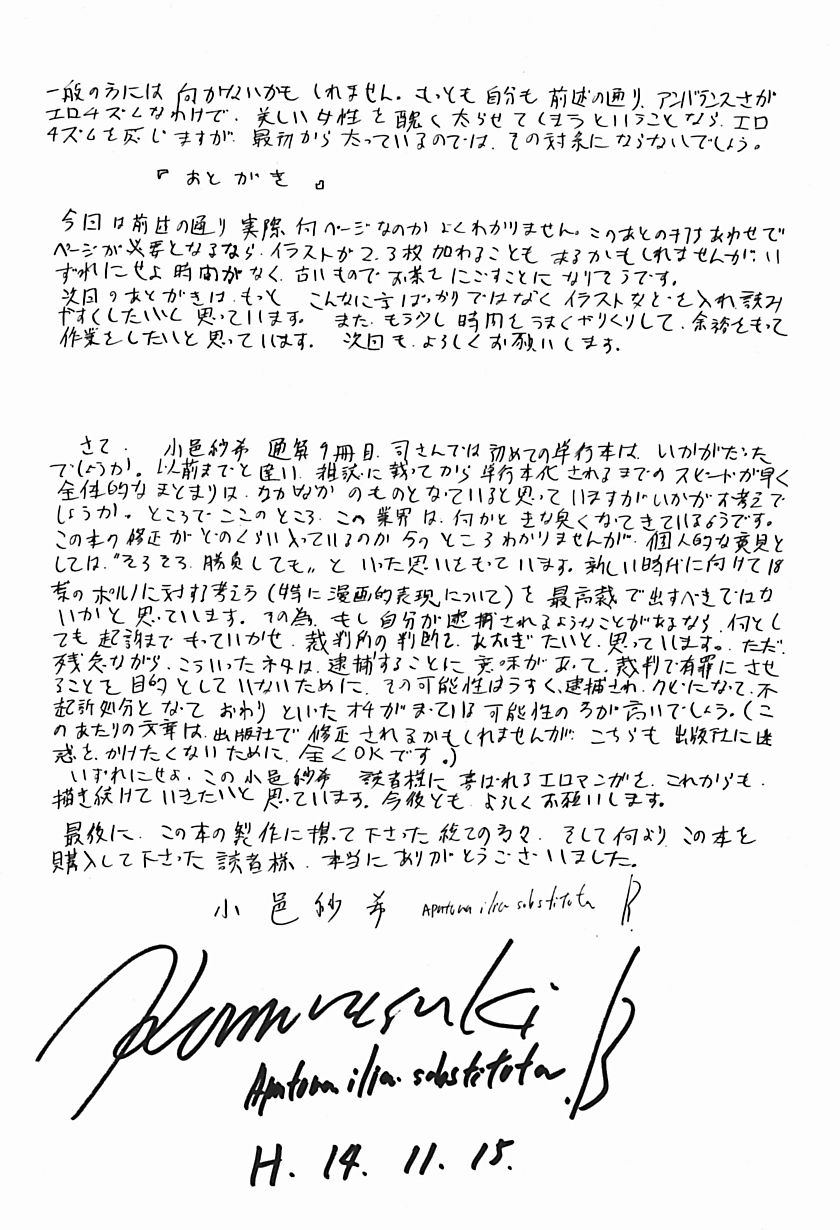 一般の方には何がないかもしれません。もっとも自分も前述の通り、アンバランスさが
エロチズムなわけで、美しい女性を醜く太らせてしまうということなら、エロ
チズムを感じますが、最初から太っているのでは、その対象にならないでしょう。
『おとがき』
今回は前述の通り実際何ページなのかよくわかりません。このあとの打ちあわせで
ページが必要となるなら、イラストが2、3枚加わることもあるかもしれませんが、い
ずれにせよ時間がなく、古いものでお茶をにごすことになりそうです。
次回のあとがきは、もっとこんなに字ばっかりではなくイラストなどを入れ、読み
やすくしたいと思っています。また、もう少し時間をうまくやりくりして、余裕をもって
作業をしたいと思っています。次回も、よろしくお願いします。
さて、小邑紗希通算9冊目、司さんでは初めての単行本は、いかがだった
でしょうか。以前までと違い、雑誌に載ってから単行本化されるまでのスピードが早く
全体的なまとまりは、なかなかのものとなっていると思っていますがいかがお考えで
しょうか。ところでここのところ、この業界は、何かときな臭くなってきているようです。
この本の修正がどのくらい入っているのか今のところわかりませんが、個人的な意見と
しては、“そろそろ、勝負しても„といった思いをもっています。新しい時代に向けて18
禁のポルノに対する考えう(特に漫画的表現について)を最高裁で出すべきではな
いかと思っています。その為、もし自分が逮捕されるようなことがあるなら、何とし
ても起訴までもっていかせ、裁判所の判断を、あおぎたいと、思っています。ただ、
残念ながら、こういったネタは、逮捕することに意味があって、裁判で有罪にさせ
ることを目的としていないために、その可能性はうすく、逮捕され、クビになって、不
起訴処分となっておわりといったオチがまっている可能性の方が高いでしょう。(こ
のあたりの文章は、出版社で修正されるかもしれませんが、こちらも出版社に迷
惑を、かけたくないために、全くOKです。)
いずれにせよ、この小邑紗希、読者様に喜ばれるエロマンガを、これからも、
描き続けていきたいと思っています。今後とも、よろしくお願いします。
最後に、この本の製作に携って下さった総ての方々、そして何より、この本を
購入して下さった読者様、本当にありがとうございました。
小邑紗希 Apatura ilia substituta B.
Komurasaki B.
Apatura ilia. substituta
H. 14. 11. 15.